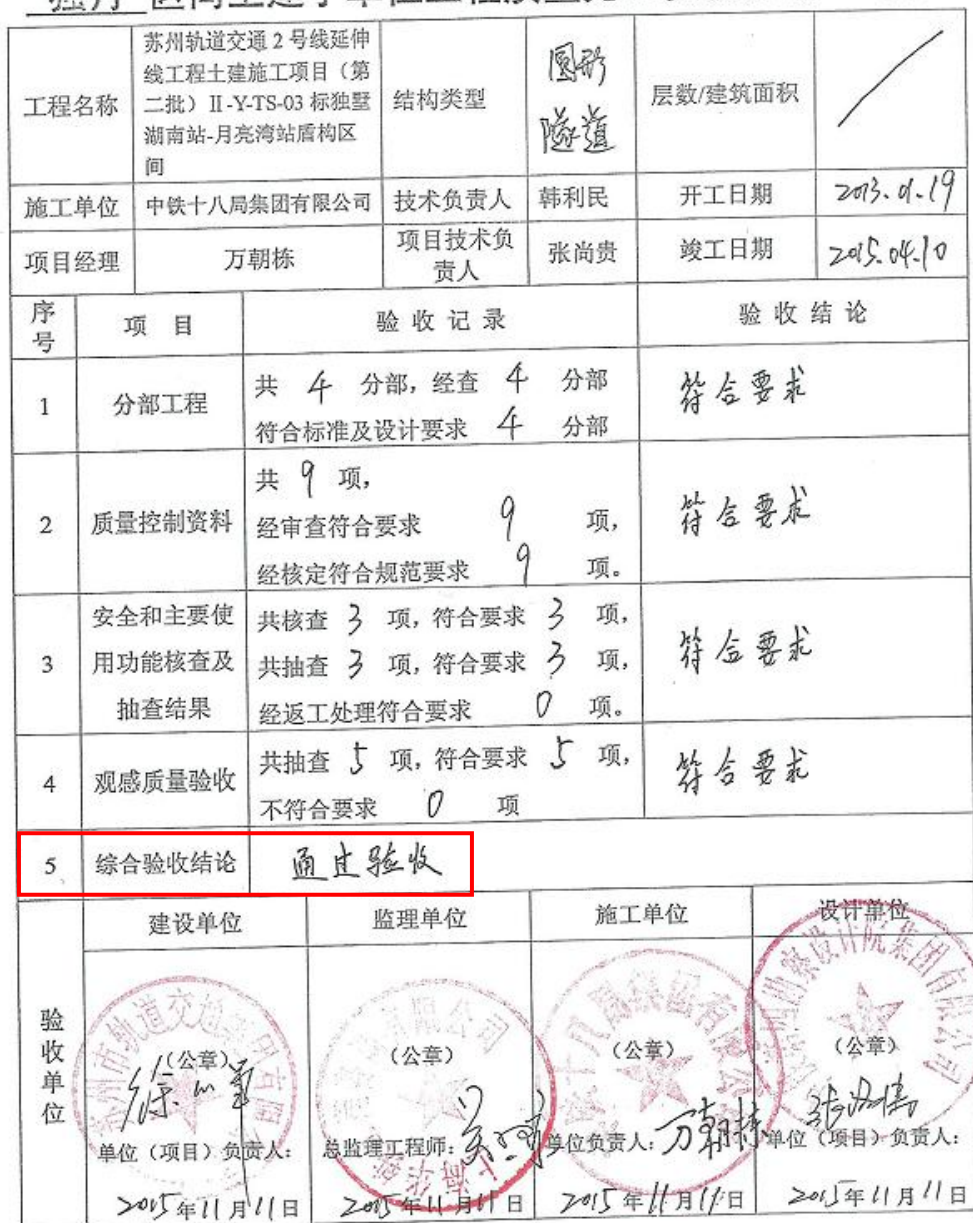 独月 区间土建子单位工程质量
工程名称
苏州轨道交通 2 号线延伸
线工程土建施工项目（第
二批）Ⅱ-Y-TS-03 标独墅
湖南站-月亮湾站盾构区
间
结构类型
圆形
隧道
层数/建筑面积
施工单位 中铁十八局集团有限公司 技术负责人 韩利民 开工日期 2013.01.19
项目经理 万朝栋
项目技术负
责人
张尚贵 竣工日期 2015.04.10
序
号
项 目 验 收 记 录 验 收 结 论
1 分部工程
共 4 分部，经查 4 分部
符合标准及设计要求 4 分部
符合要求
2 质量控制资料
共 9 项，
经审查符合要求 9 项，
经核定符合规范要求 9 项。
符合要求
3
安全和主要使
用功能核查及
抽查结果
共核查 3 项，符合要求 3 项，
共抽查 3 项，符合要求 3 项，
经返工处理符合要求 0 项。
符合要求
4 观感质量验收
共抽查 5 项，符合要求 5 项，
不符合要求 0 项
符合要求
5 综合验收结论 通过验收
验
收
单
位
建设单位 监理单位 施工单位 设计单位
（公章） （公章） （公章） （公章）
单位（项目）负责人： 总监理工程师： 单位负责人：万朝栋 单位（项目）负责人：
2015年11月11日 2015年11月11日 2015年11月11日 2015年11月11日